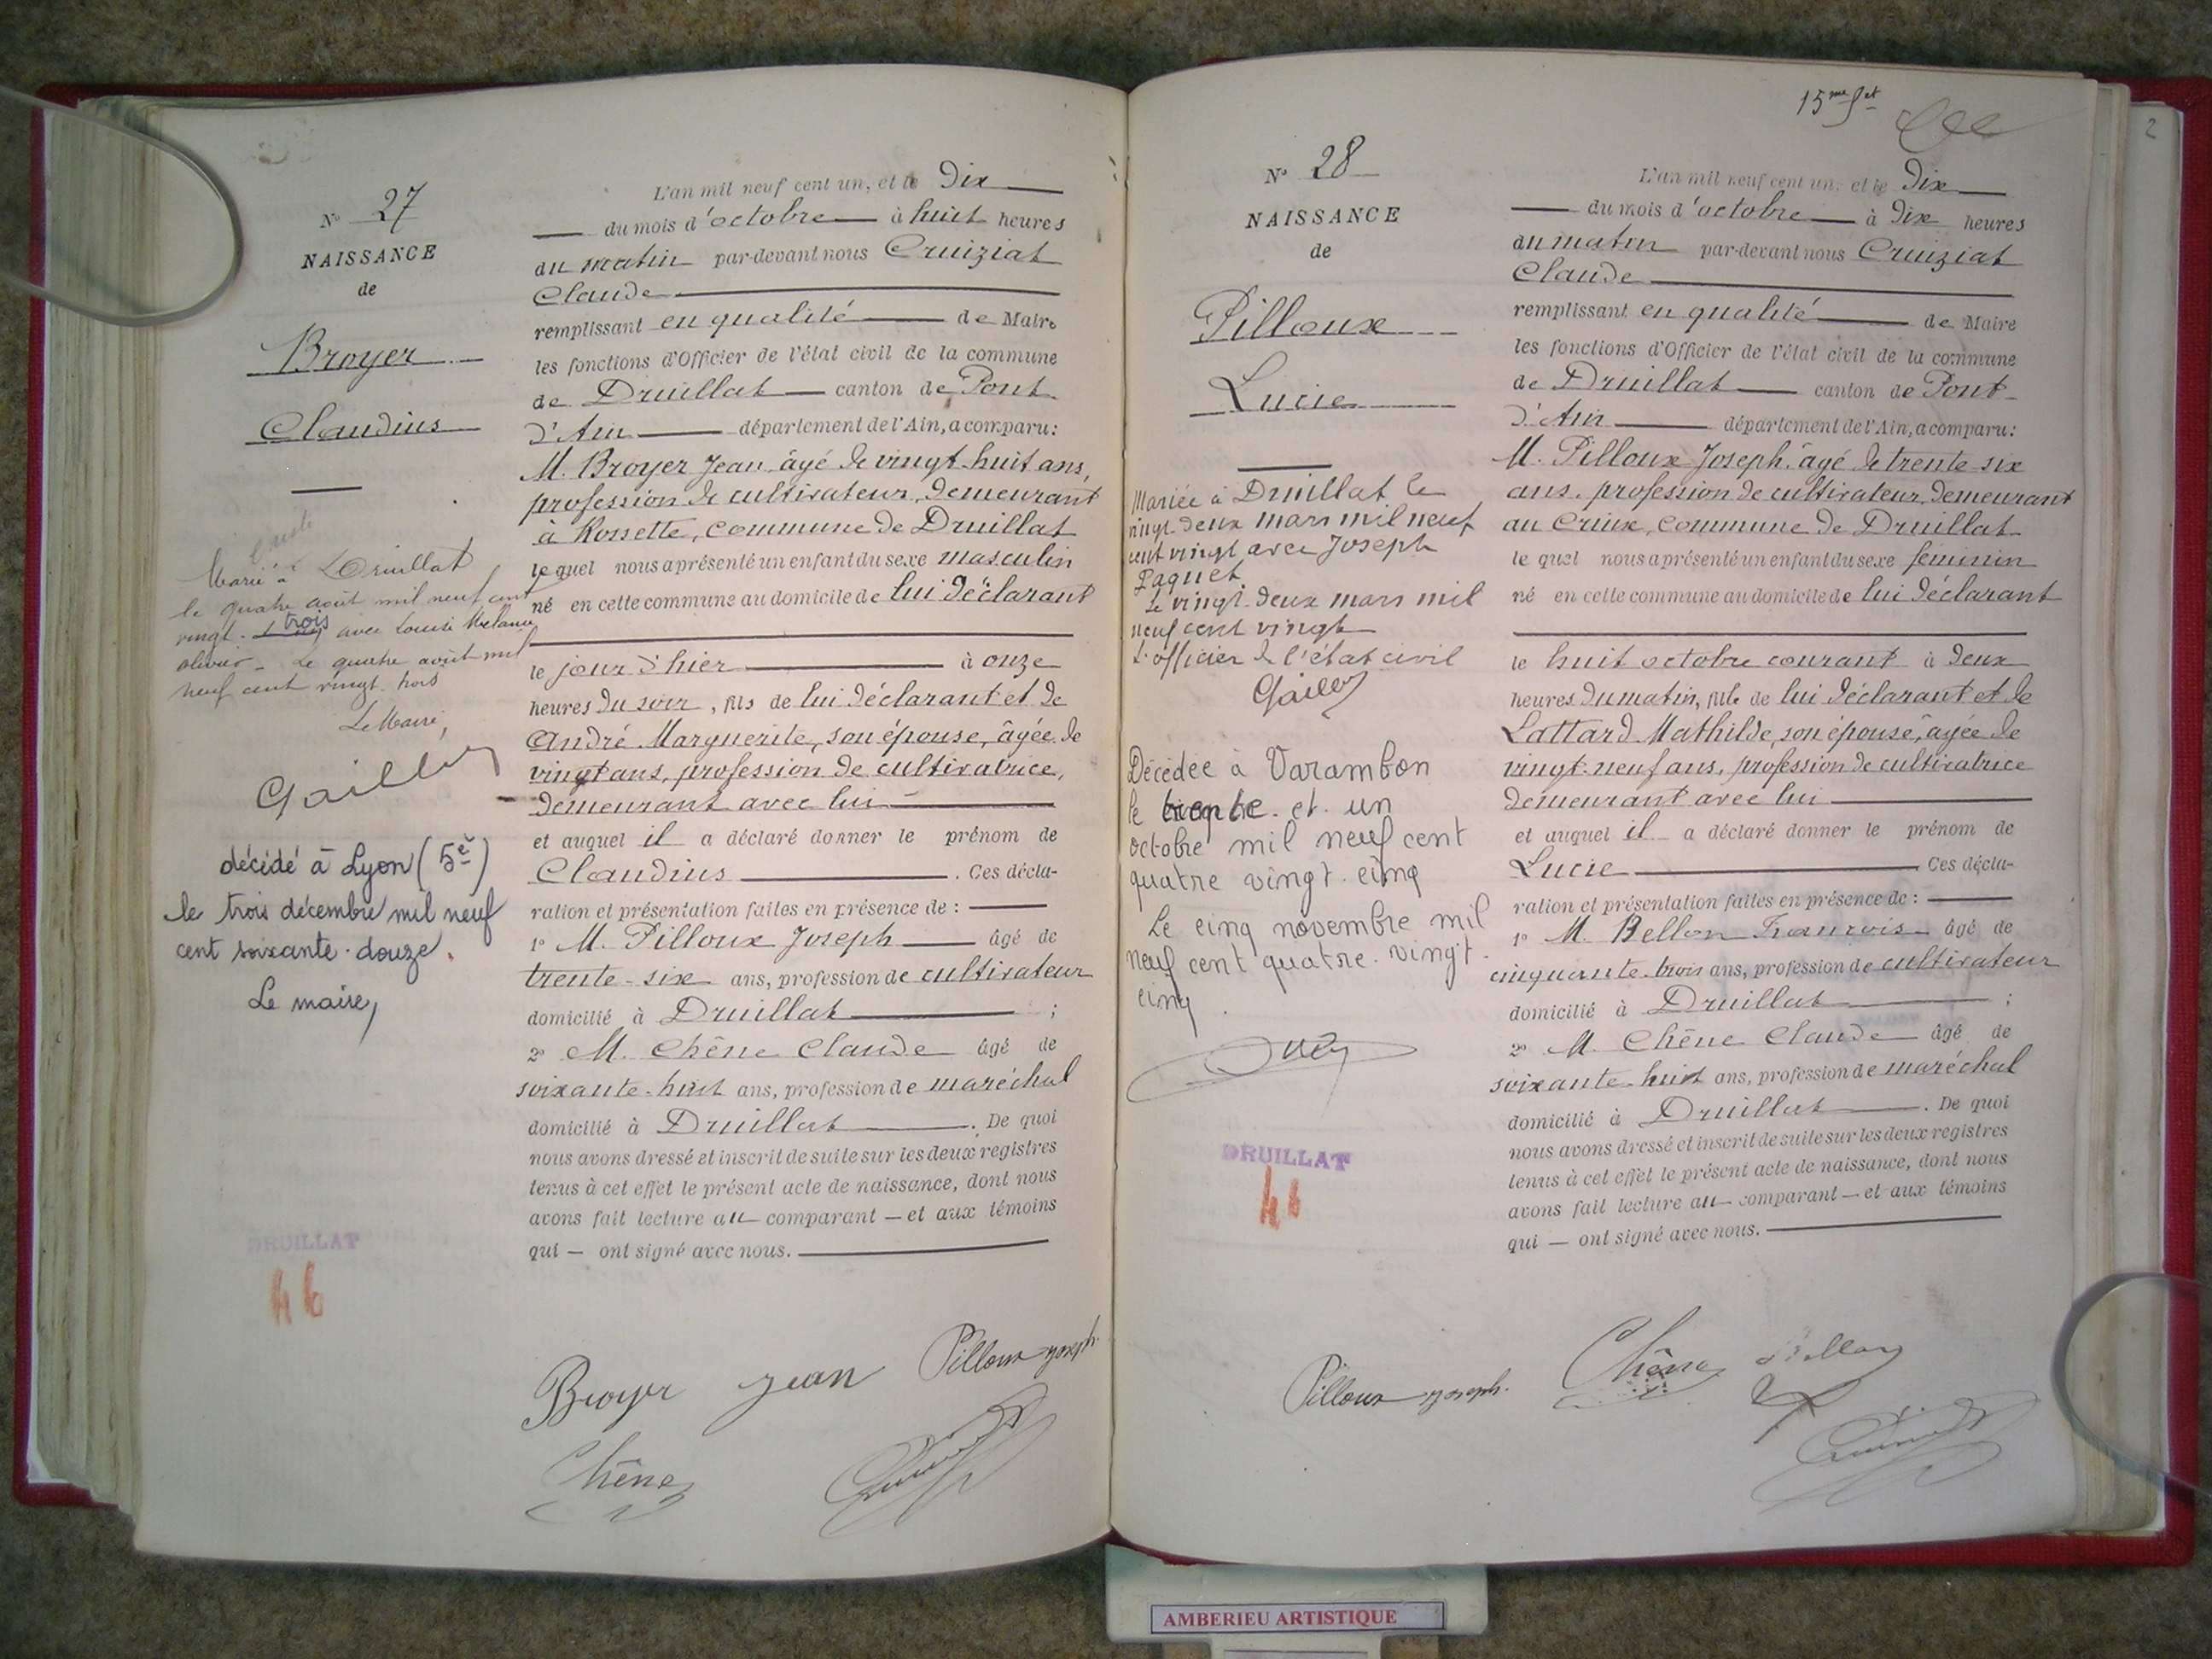 N° 27
NAISSANCE
de
Broyer
Claudius
Marié à Druillat
le quatre août mil neuf cent
vingt trois avec Louise Melanie
olivier - Le quatre août mil
neuf cent vingt trois
Le Maire,
décédé à Lyon (5e)
le trois décembre mil neuf
cent soixante-douze.
Le maire,
DRUILLAT
46
L'an mil neuf cent un, et le Dix
du mois d'octobre à huit heures
du matin par-devant nous Cruiziat
Claude
remplissant en qualité de Maire
les fonctions d'Officier de l'état civil de la commune
de Druillat canton de Pont
d'Ain département de l'Ain, a comparu:
M. Broyer Jean, âgé de vingt-huit ans,
profession de cultivateur, demeurant
à Rossette, commune de Druillat
le quel nous a présenté un enfant du sexe masculin
né en cette commune au domicile de lui déclarant
le jour d'hier à onze
heures du soir, fils de lui déclarant et de
André Marguerite, son épouse, âgée de
vingt ans, profession de cultivatrice,
demeurant avec lui
et auquel il a déclaré donner le prénom de
Claudius. Ces décla-
ration et présentation faites en présence de :
1° M. Pilloux Joseph âgé de
trente-six ans, profession de cultivateur
domicilié à Druillat ;
2° M. Chêne Claude âgé de
soixante-huit ans, profession de maréchal
domicilié à Druillat. De quoi
nous avons dressé et inscrit de suite sur les deux registres
tenus à cet effet le présent acte de naissance, dont nous
avons fait lecture au comparant — et aux témoins
qui — ont signé avec nous.
Broyer Jean Pilloux Joseph
Chêne
15me fet
N° 28
NAISSANCE
de
Pilloux
Lucie
Mariée à Druillat le
vingt-deux mars mil neuf
cent vingt avec Joseph
Paquet
Le vingt-deux mars mil
neuf cent vingt
L'officier de l'état civil
Décédée à Varambon
le trente et un
octobre mil neuf cent
quatre vingt-cinq
Le cinq novembre mil
neuf cent quatre-vingt-
cinq
DRUILLAT
46
L'an mil neuf cent un, et le Dix
du mois d'octobre à Dix heures
du matin par-devant nous Cruiziat
Claude
remplissant en qualité de Maire
les fonctions d'Officier de l'état civil de la commune
de Druillat canton de Pont-
d'Ain département de l'Ain, a comparu:
M. Pilloux Joseph, âgé de trente-six
ans, profession de cultivateur, demeurant
au Crieux, commune de Druillat
le quel nous a présenté un enfant du sexe féminin
né en cette commune au domicile de lui déclarant
le huit octobre courant à deux
heures du matin, fille de lui déclarant et de
Lattard Mathilde, son épouse, âgée de
vingt-neuf ans, profession de cultivatrice
demeurant avec lui
et auquel il a déclaré donner le prénom de
Lucie Ces décla-
ration et présentation faites en présence de :
1° M. Bellon François âgé de
cinquante-trois ans, profession de cultivateur
domicilié à Druillat ;
2° M. Chêne Claude âgé de
soixante-huit ans, profession de maréchal
domicilié à Druillat. De quoi
nous avons dressé et inscrit de suite sur les deux registres
tenus à cet effet le présent acte de naissance, dont nous
avons fait lecture au comparant — et aux témoins
qui — ont signé avec nous.
Pilloux Joseph. Chêne
2
AMBERIEU ARTISTIQUE